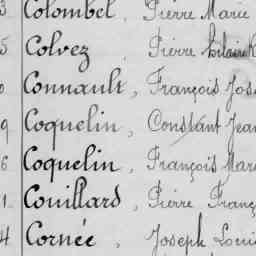 3 Colombel, Pierre Marie
5 Colvez, Pierre Hilaire
Connault, François Jos
9 Coquelin, Constant Jean
6 Coquelin, François Mar
1 Couillard, Pierre Franç
4 Cornée, Joseph Loui